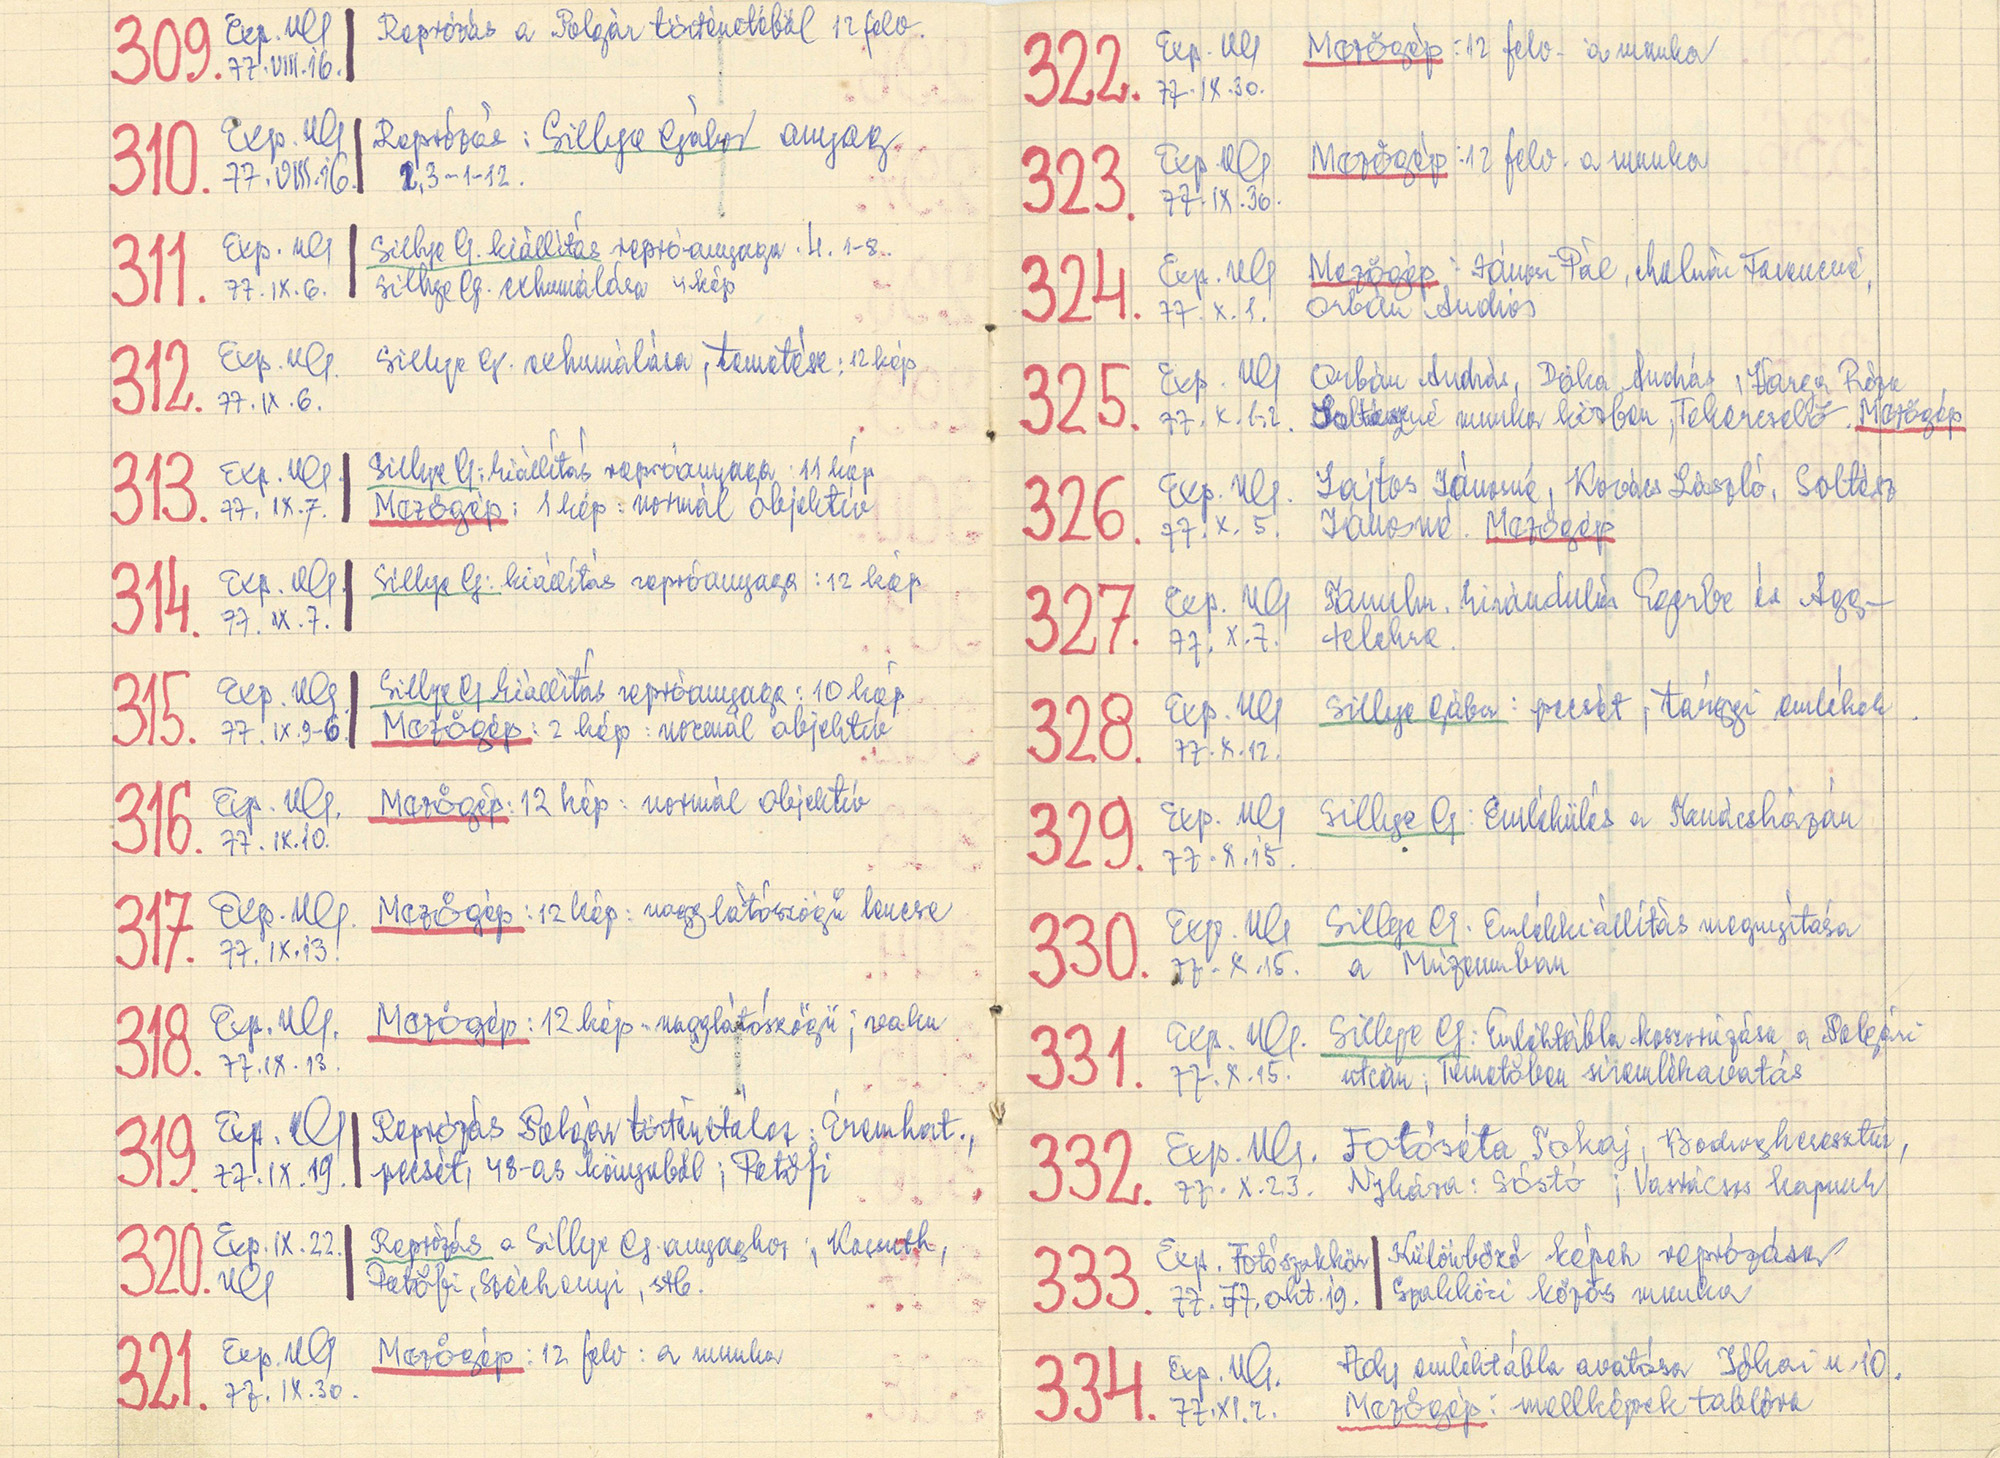 309. Exp. UG Reprózás a Polgár történetéből 12 felv.
77. VIII. 16.
310. Exp. UG Reprózás: Sillye Gábor anyag
77. VIII. 16. 2,3-1-12.
311. Exp. UG Sillye G. kiállítás repróanyaga. 4. 1-8.
77. IX. 6. Sillye G. exhumálása 4 kép
312. Exp. UG. Sillye G. exhumálása, temetése: 12 kép
77. IX. 6.
313. Exp. UG. Sillye G. kiállítás repróanyaga: 11 kép
77. IX. 7. Mezőgép: 1 kép: normál objektív
314. Exp. UG. Sillye G. kiállítás repróanyaga: 12 kép
77. IX. 7.
315. Exp. UG. Sillye G kiállítás repróanyaga: 10 kép
77. IX. 9-6. Mezőgép: 2 kép: normál objektív
316. Exp. UG. Mezőgép: 12 kép: normál objektív
77. IX. 10.
317. Exp. UG. Mezőgép: 12 kép: nagylátószögű lencse
77. IX. 13.
318. Exp. UG. Mezőgép: 12 kép - nagylátószögű; vaku
77. IX. 13.
319. Exp. UG Reprózás Polgár történetéhez: Éremhat.,
77. IX. 19. pecsét, 48-as könyvből; Petőfi
320. Exp. IX. 22. Reprózás a Sillye G. anyaghoz; Kossuth,
UG Petőfi, Széchenyi, stb.
321. Exp. UG Mezőgép: 12 felv: a munka
77. IX. 30.
322. Exp. UG Mezőgép: 12 felv - a munka
77. IX. 30.
323. Exp. UG Mezőgép: 12 felv. a munka
77. IX. 30.
324. Exp. UG Mezőgép: Jánosi Pál, Molnár Ferencné,
77. X. 1. Orbán András
325. Exp. UG Orbán András, Dóka András, Varga Róza
77. X. 1-2. munka közben, Tekercselő. Mezőgép
326. Exp. UG. Lajtos Jánosné, Kovács László, Soltész
77. X. 5. Jánosné. Mezőgép
327. Exp. UG Tanulm. kirándulás Egerbe és Agg-
77. X. 7. telekre.
328. Exp. UG Sillye Gábor: pecsét, tárgyi emlékek.
77. X. 12.
329. Exp. UG Sillye G: Emlékülés a Tanácsházán
77. X. 15.
330. Exp. UG Sillye G. Emlékkiállítás megnyitása
77. X. 15. a Múzeumban
331. Exp. UG. Sillye G: Emléktábla koszorúzása a Polgári
77. X. 15. utcán; Temetőben síremlékavatás
332. Exp. UG. Fotóséta Tokaj, Bodrogkeresztúr,
77. X. 23. Nyháza: Sóstó; Vasrácsos kapuk
333. Exp. Fotószakkör Különböző képek reprózása
77. 77. okt. 19. Szakköri közös munka
334. Exp. UG. Ady emléktábla avatása Jókai u. 10.
77. XI. 2. Mezőgép: mellképek tablóra